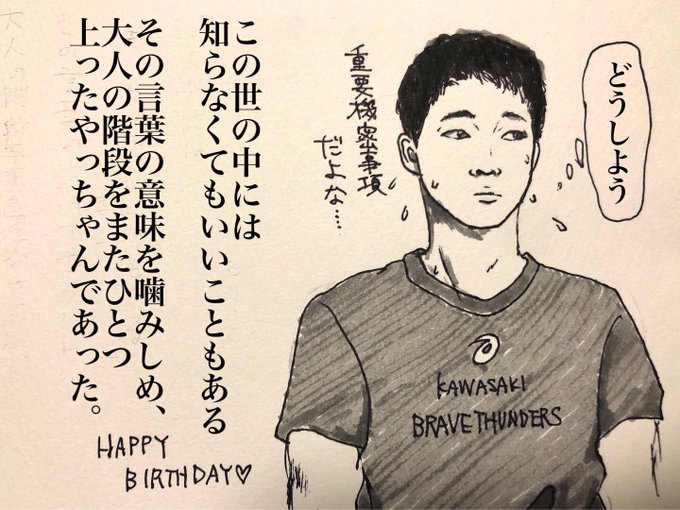 どうしよう
重要機密事項
だよな…
この世の中には
知らなくてもいいこともある
その言葉の意味を噛みしめ、
大人の階段をまたひとつ
上ったやっちゃんであった。
KAWASAKI
BRAVE THUNDERS
HAPPY
BIRTHDAY♡